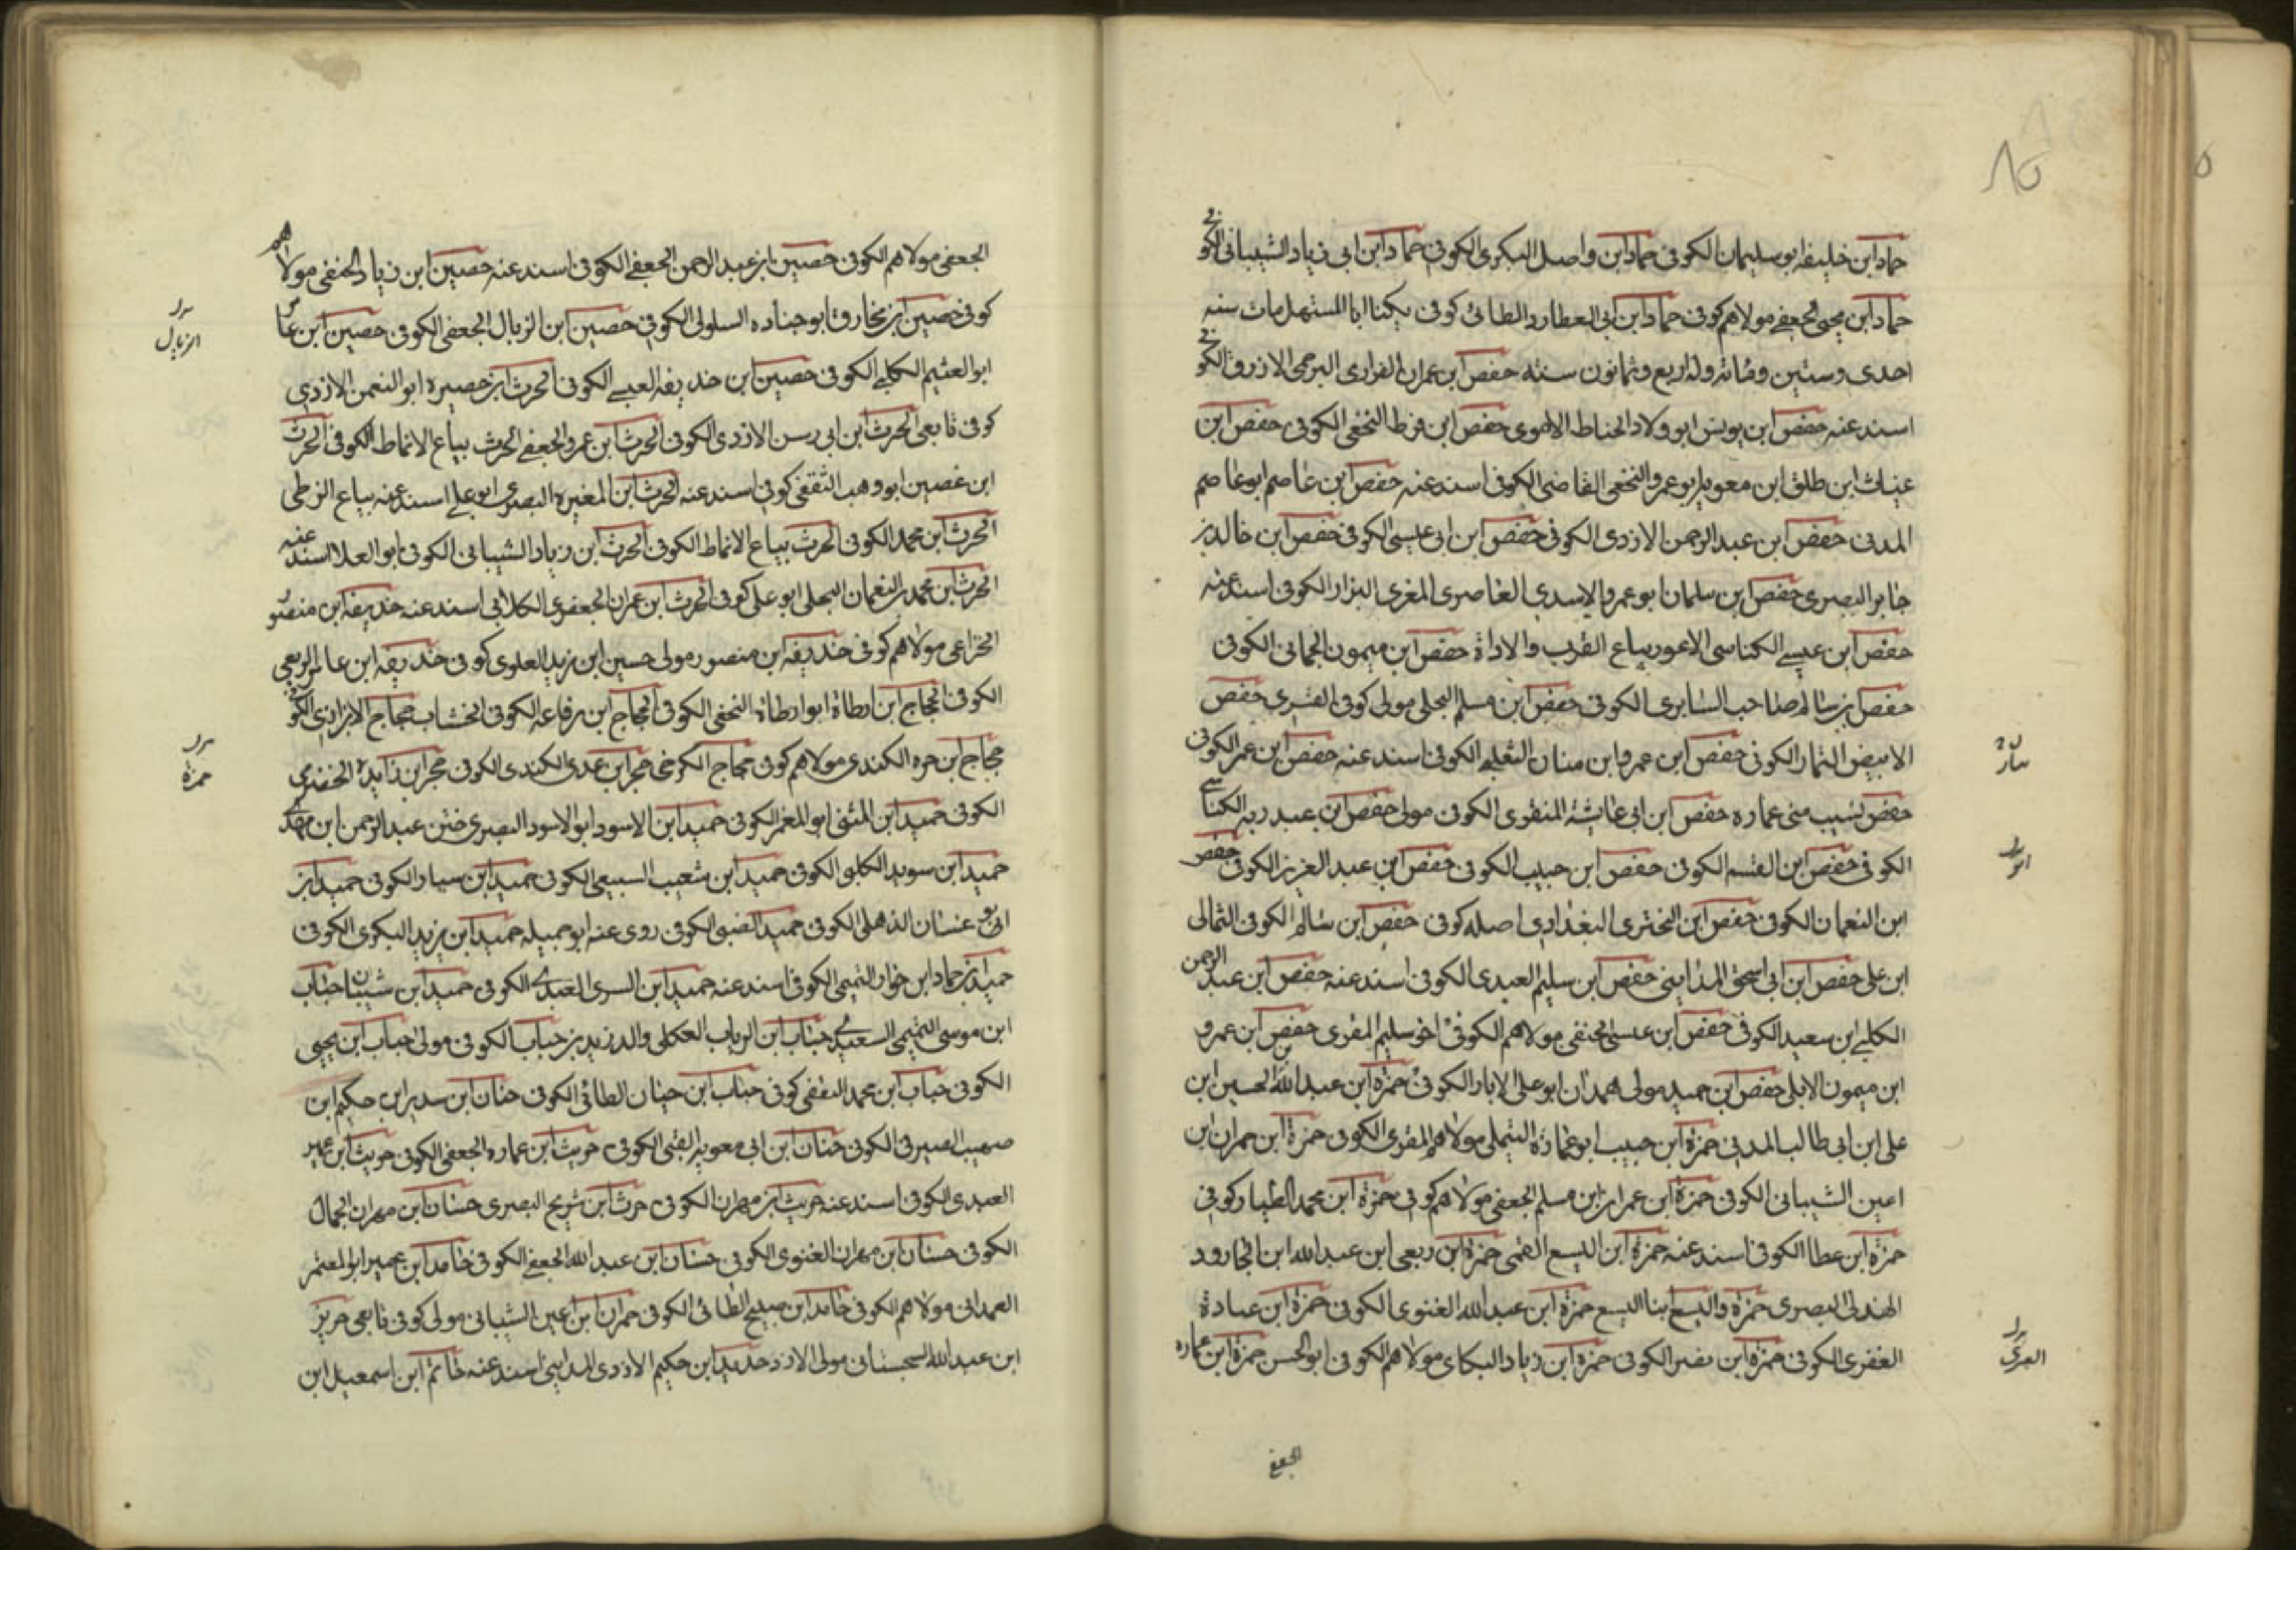 حماد ابن خليفه ابو سليمان الكوفى حماد ابن واصل البكرى الكوفى حماد ابن ابى زياد الشيبانى الكوفى
حماد ابن يحيى الجعفى مولاهم كوفى حماد ابن ابى العطارد الطائى كوفى يكنا ابا المستهل مات سنه
احدى وستين ومائه وله اربع وثمانون سنته حفص ابن عمران الفزارى البرجمى الازرق الكوفى
اسند عنه حفص ابن يونس ابو ولاد الحناط الاموى حفص ابن قرط النخعى الكوفى حفص ابن
غياث ابن طلق ابن معويه ابو عمرو النخعى القاضى الكوفى اسند عنه حفص ابن عاصم ابو عاصم
المدنى حفص ابن عبد الرحمن الازدى الكوفى حفص ابن ابى عيسى الكوفى حفص ابن خالد بن
جابر البصرى حفص ابن سلمان ابو عمرو الاسدى الغاصرى المغرى البزاز الكوفى اسند عنه
حفص ابن عيسى الكناسى الاعور بياع القرب والاداة حفص ابن ميمون الجمانى الكوفى
حفص بن سالم صاحب السابرى الكوفى حفص ابن مسلم البجلى مولى كوفى القسرى حفص
الابيض التمار الكوفى حفص ابن عمرو ابن منان الثعلبى الكوفى اسند عنه حفص ابن عمر الكوفى
حفص نسيب بنى عماره حفص ابن ابى عائشة المنقرى الكوفى مولى حفص ابن عبد ربه الكناسى
الكوفى حفص ابن القسم الكوفى حفص ابن حبيب الكوفى حفص ابن عبد العزيز الكوفى حفص
ابن النعمان الكوفى حفص ابن البخترى البغدادى اصله كوفى حفص ابن سالم الكوفى الثمالى
ابن على حفص ابن ابى اسحق المداينى حفص ابن سليم العبدى الكوفى اسند عنه حفص ابن عبد الرحمن
الكلبى ابن سعيد الكوفى حفص ابن عيسى الحنفى مولاهم الكوفى اخو سليم المقرى حفص ابن عمرو
ابن ميمون الابلى حفص ابن حميد مولى همدان ابو على الابار الكوفى حمزة ابن عبد الله الحسين ابن
على ابن ابى طالب المدنى حمزة ابن حبيب ابو عمارة التيملى مولاهم المقرى الكوفى حمزة ابن حمران ابن
اعين الشيبانى الكوفى حمزة ابن عمران ابن مسلم الجعفى مولاهم كوفى حمزة ابن محمد الطيار كوفى
حمزة ابن عطا الكوفى اسند عنه حمزة ابن اليسع القمى حمزة ابن ربعى ابن عبد الله ابن الجارود
الهندلى البصرى حمزة واليسع ابنا اليسع حمزة ابن عبد الله الغنوى الكوفى حمزة ابن عبادة
العنزى الكوفى حمزة ابن نصير الكوفى حمزة ابن زياد البكاى مولاهم الكوفى ابو الحسن حمزة ابن عماره
الجعفى
الجعفى مولاهم الكوفى حصين ابن عبد الرحمن الجعفى الكوفى اسند عنه حصين ابن زياد الحنفى مولاهم
كوفى حصين ابن مخارق ابو جناده السلولى الكوفى حصين ابن الزبال الجعفى الكوفى حصين ابن عامر
ابو الهيثم الكلبى الكوفى حصين ابن حذيفه العبسى الكوفى الحرث ابن حصيره ابو النعمن الازدى
كوفى تابعى الحرث ابن ابى رسن الازدى الكوفى الحرث ابن عمرو الجعفى الحرث بياع الانماط الكوفى الحرث
ابن غصين ابو وهب الثقفى كوفى اسند عنه الحرث ابن المغيره البصرى ابو على اسند عنه بياع الزطى
الحرث ابن محمد الكوفى الحرث بياع الانماط الكوفى الحرث ابن زياد الشيبانى الكوفى ابو العلا اسند عنه
الحرث ابن محمد بن النعمان البجلى ابو على كوفى الحرث ابن عمران الجعفرى الكلابى اسند عنه حذيفه ابن منصور
الخزاعى مولاهم كوفى حذيفه ابن منصور مولى حسين ابن زيد العلوى كوفى حذيفه ابن عامر الربعى
الكوفى الحجاج ابن ارطاة ابو ارطاة النخعى الكوفى الحجاج ابن رفاعه الكوفى الخشاب حجاج الابزارى الكوفى
حجاج ابن حره الكندى مولاهم كوفى حجاج الكرخى حجر ابن عدى الكندى الكوفى حجر ابن زايده الحضرمى
الكوفى حميد ابن المثنى ابو المغرا الكوفى حميد ابن الاسود ابو الاسود البصرى ختن عبد الرحمن ابن مهدى
حميد ابن سويد الكلبى الكوفى حميد ابن شعيب السبيعى الكوفى حميد ابن سيار الكوفى حميد ابن
ابى غسان الذهلى الكوفى حميد الضبى الكوفى روى عنه ابو جميله حميد ابن يزيد البكرى الكوفى
حميد بن حماد ابن خوار التميمى الكوفى اسند عنه حميد ابن السرى العبدى الكوفى حميد ابن شيبان حباب
ابن موسى التميمى السعيدى حباب ابن الرباب العكلى والد زيد بن حباب الكوفى مولى حباب ابن يحيى
الكوفى حباب ابن محمد الثقفى كوفى حباب ابن حيان الطائى الكوفى حنان ابن سدير ابن حكيم ابن
صهيب الصيرفى الكوفى حنان ابن ابى معويه القبى الكوفى حريث ابن عماره الجعفى الكوفى حريث ابن عمير
العبدى الكوفى اسند عنه حريث ابن مهران الكوفى حرث ابن شريح البصرى حسان ابن مهران الجمال
الكوفى حسان ابن مهران الغنوى الكوفى حسان ابن عبد الله الجعفى الكوفى حامد ابن عمير ابو المعتمر
الهمدانى مولاهم الكوفى حامد ابن صبيح الطائى الكوفى حمران ابن اعين الشيبانى مولى كوفى تابعى حريز
ابن عبد الله السجستانى مولى الازد حديد ابن حكيم الازدى المداينى اسند عنه خاتم ابن اسمعيل ابن